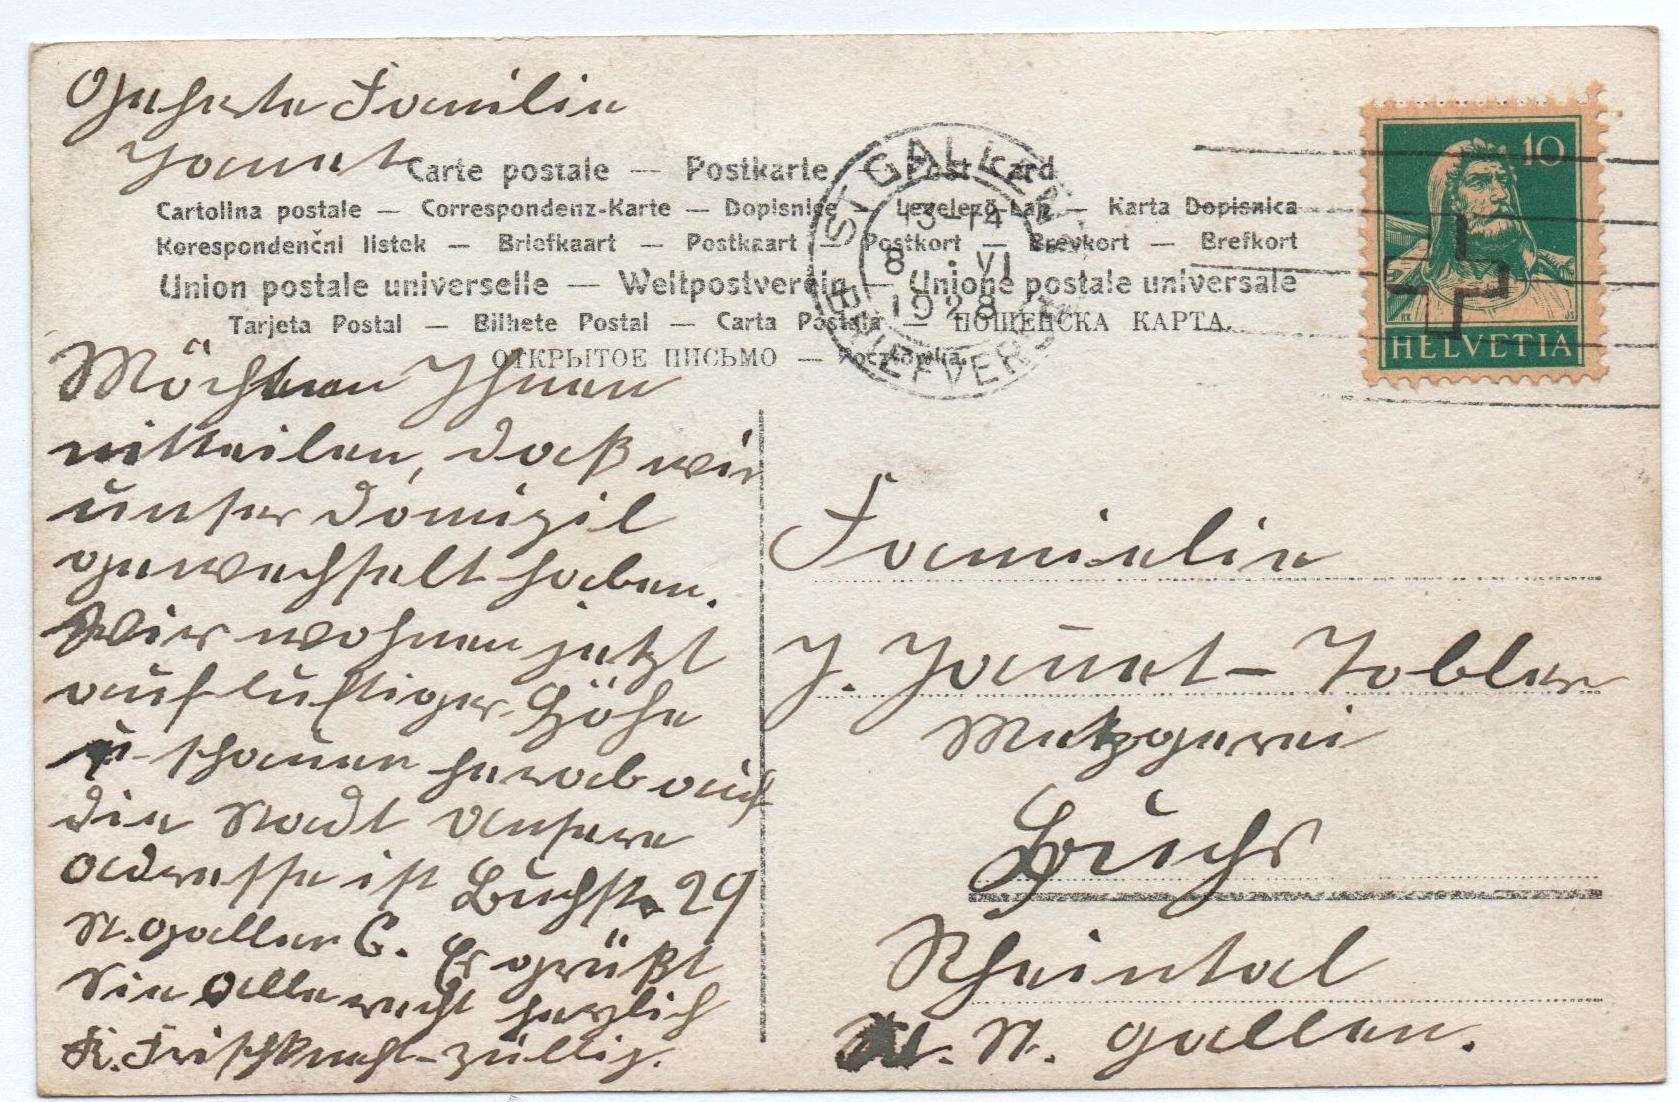 Geehrte Familie
Carte postale — Postkarte — Post Card
Cartolina postale — Correspondenz-Karte — Dopisnice — Levelező-Lap — Karta Dopisnica
Korespondenční listek — Briefkaart — Postkaart — Postkort — Brevkort — Brefkort
Union postale universelle — Weltpostverein — Unione postale universale
Tarjeta Postal — Bilhete Postal — Carta Postala — ПОЩЕНСКА КАРТА.
ОТКРЫТОЕ ПИСЬМО — Pocztówka.
ST. GALLEN
13-14
8. VI
1928
BRIEFVERS
10
HELVETIA
Möchten Ihnen
mitteilen, daß wir
unser Domizil
gewechselt haben.
Wir wohnen jetzt
auf luftiger Höhe
u. schauen herab auf
die Stadt Unsere
Adresse ist Buchstr. 29
St. Gallen C. Es grüßt
Sie Alle recht herzlich
Frischknecht-Züllig.
Familie
J. - Tobler
Metzgerei
Buchs
Rheintal
St. Gallen.